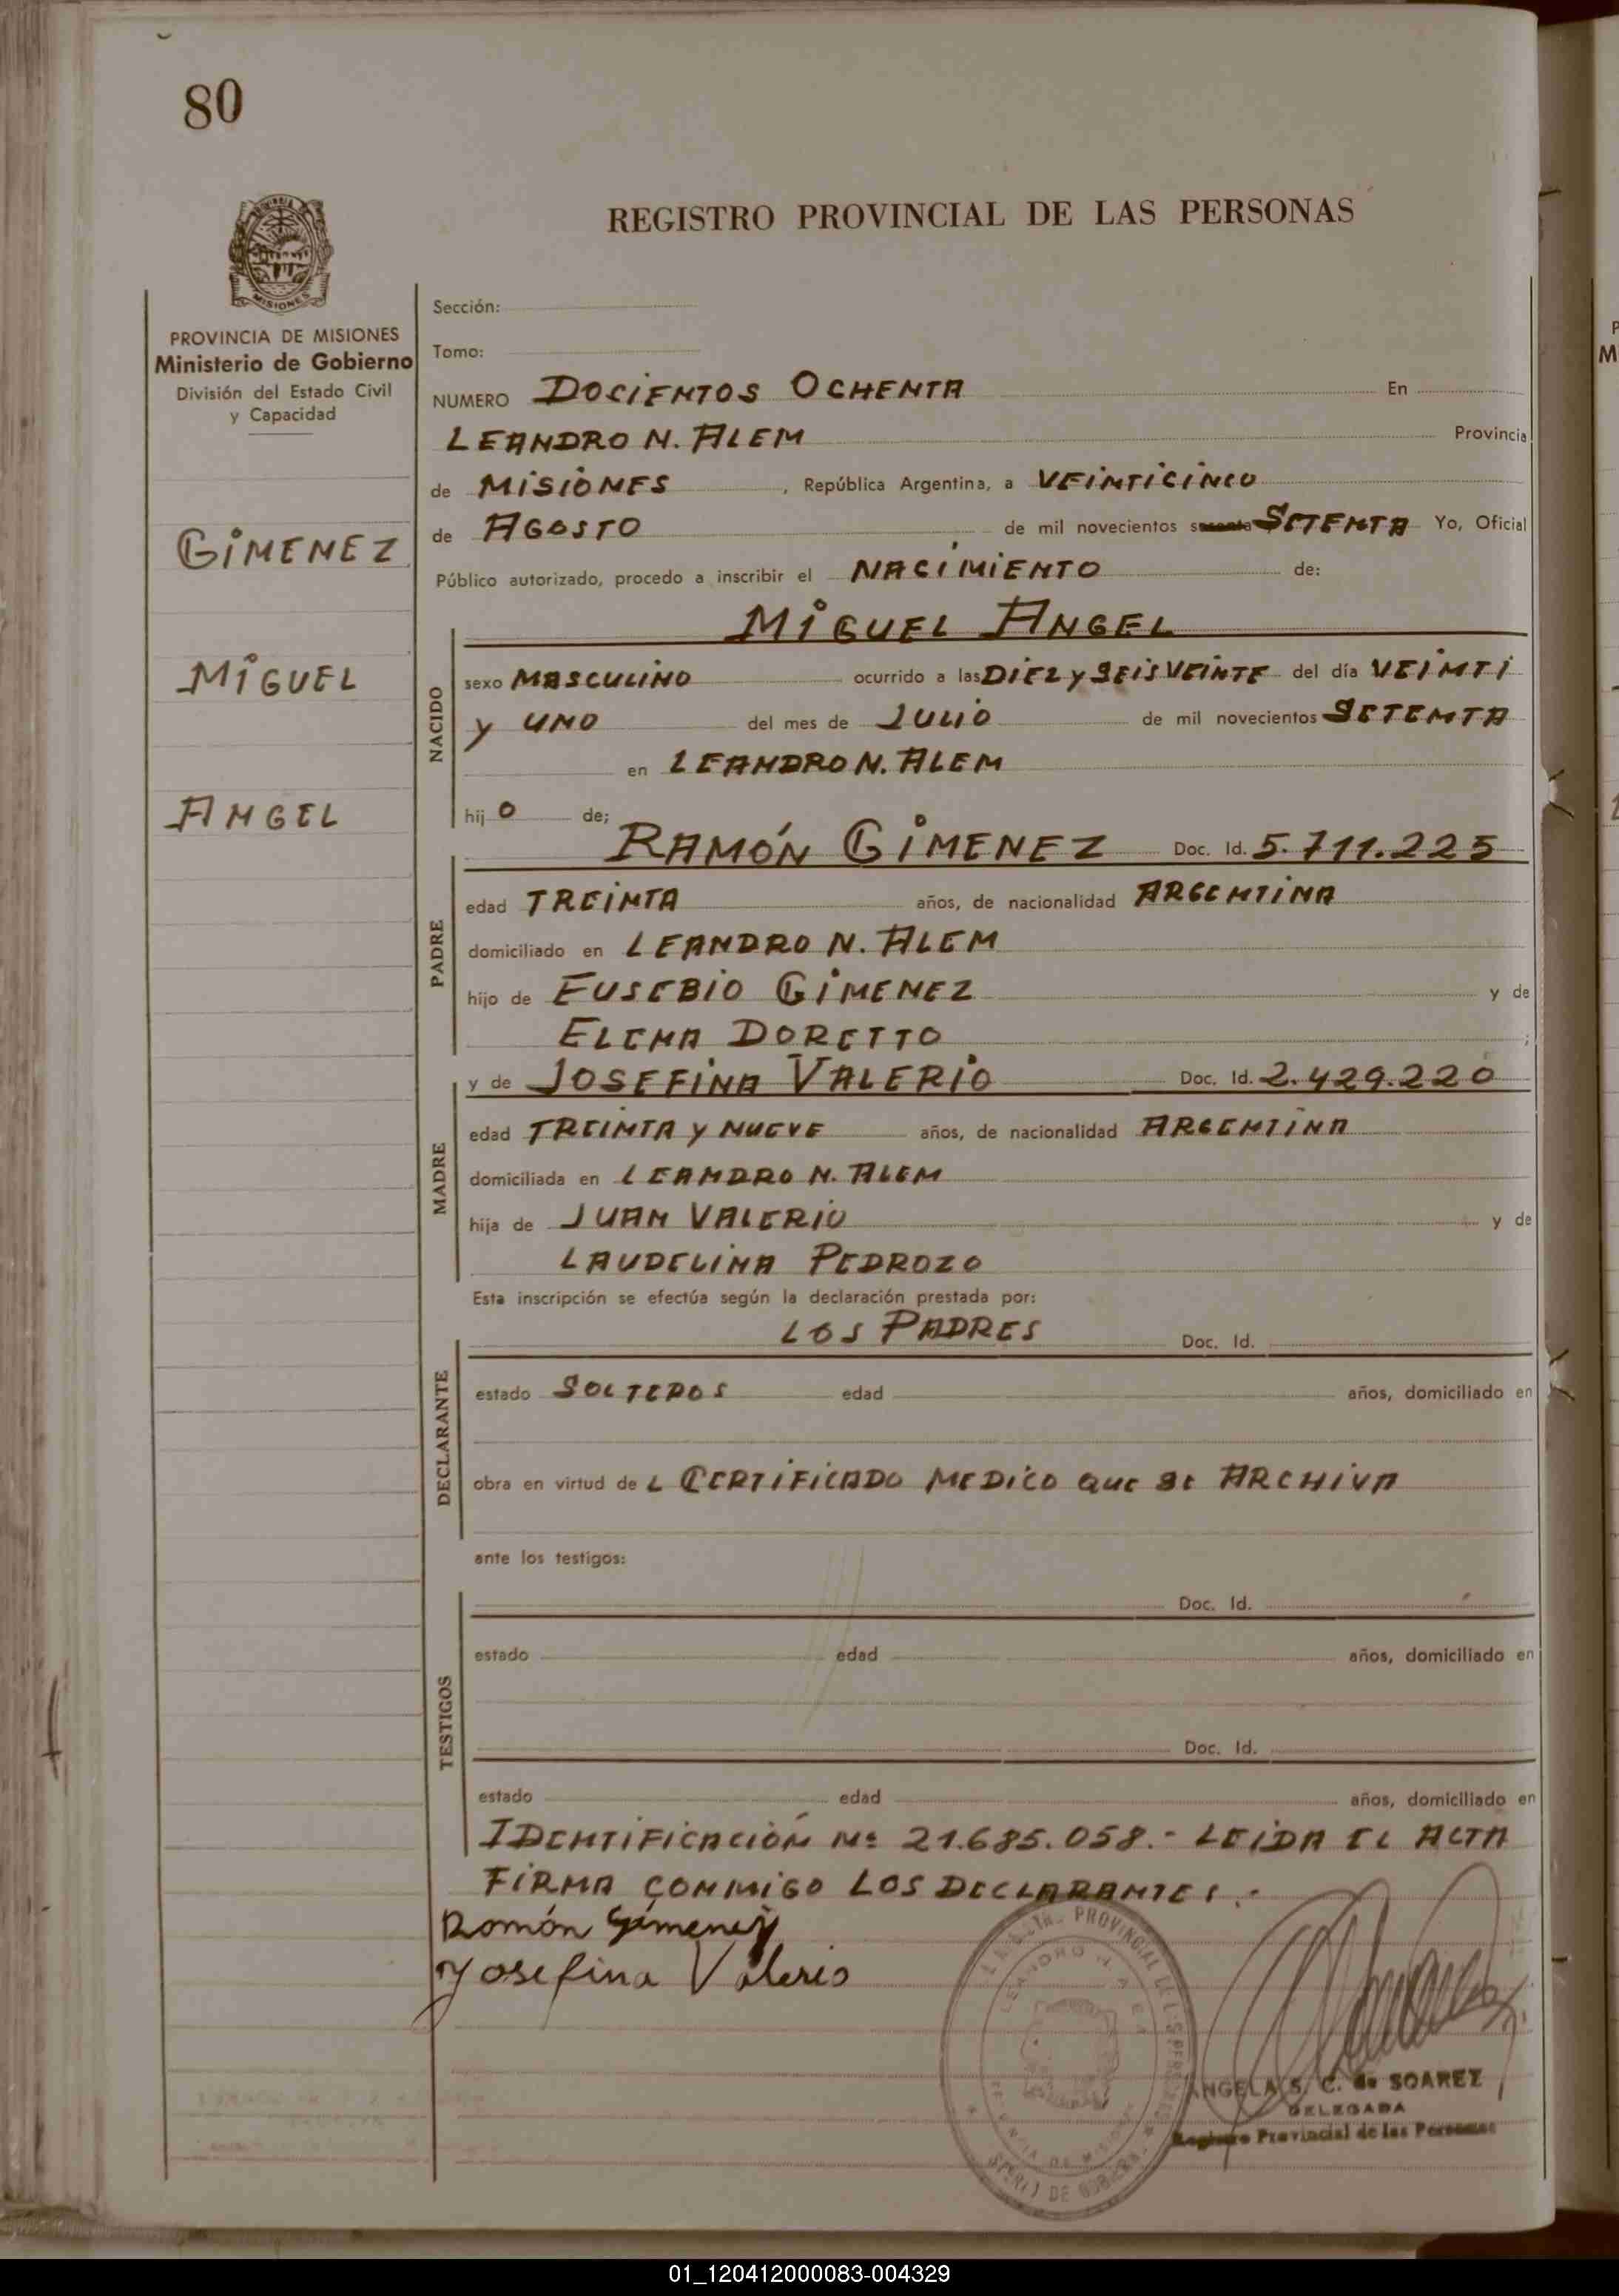 80
REGISTRO PROVINCIAL DE LAS PERSONAS
MISIONES
PROVINCIA DE MISIONES
Ministerio de Gobierno
División del Estado Civil
y Capacidad
GIMENEZ
MIGUEL
ANGEL
Sección:
Tomo:
NUMERO DOCIENTOS OCHENTA En
LEANDRO N. ALEM Provincia
de MISIONES, República Argentina, a VEINTICINCO
de AGOSTO de mil novecientos sesenta SETENTA Yo, Oficial
Público autorizado, procedo a inscribir el NACIMIENTO de:
MIGUEL ANGEL
NACIDO
sexo MASCULINO ocurrido a las DIEZ y SEIS VEINTE del día VEINTI
y UNO del mes de JULIO de mil novecientos SETENTA
en LEANDRO N. ALEM
hij O de;
RAMÓN GIMENEZ Doc. Id. 5.711.225
PADRE
edad TREINTA años, de nacionalidad ARGENTINA
domiciliado en LEANDRO N. ALEM
hijo de EUSEBIO GIMENEZ y de
ELENA DORETTO ;
y de JOSEFINA VALERIO Doc. Id. 2.429.220
MADRE
edad TREINTA y NUEVE años, de nacionalidad ARGENTINA
domiciliada en LEANDRO N. ALEM
hija de JUAN VALERIO y de
LAUDELINA PEDROZO
Esta inscripción se efectúa según la declaración prestada por:
LOS PADRES Doc. Id.
DECLARANTE
estado SOLTEROS edad años, domiciliado en
obra en virtud de L CERTIFICADO MEDICO QUE SE ARCHIVA
ante los testigos:
Doc. Id.
TESTIGOS
estado edad años, domiciliado en
Doc. Id.
estado edad años, domiciliado en
IDENTIFICACIÓN Nº 21.685.058.- LEIDA EL ACTA
FIRMA CONMIGO LOS DECLARANTES.-
Ramón Gimenez
Josefina Valerio
ANGELA S. C. de SOAREZ
DELEGADA
Registro Provincial de las Personas
01_120412000083-004329